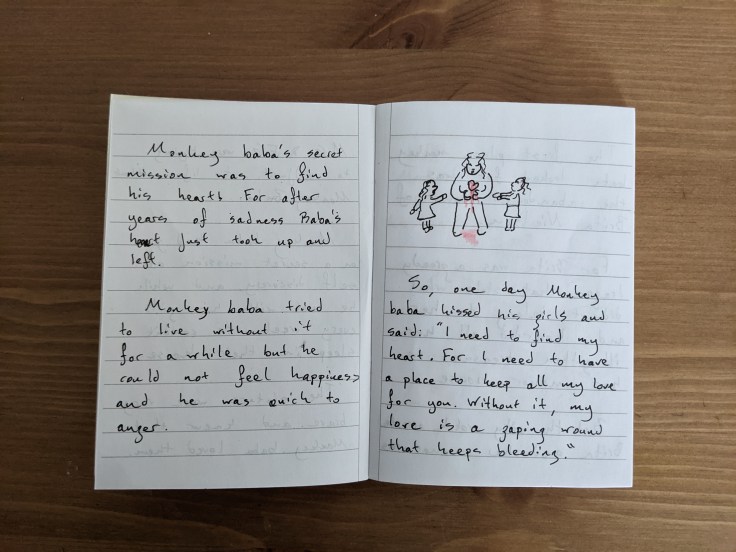 Monkey baba's secret
mission was to find
his heart! For after
years of sadness Baba's
heart just took up and
left.
Monkey baba tried
to live without it
for a while but he
could not feel happiness
and he was quick to
anger.
So, one day Monkey
baba kissed his girls and
said: "I need to find my
heart. For I need to have
a place to keep all my love
for you. Without it, my
love is a gaping wound
that keeps bleeding."